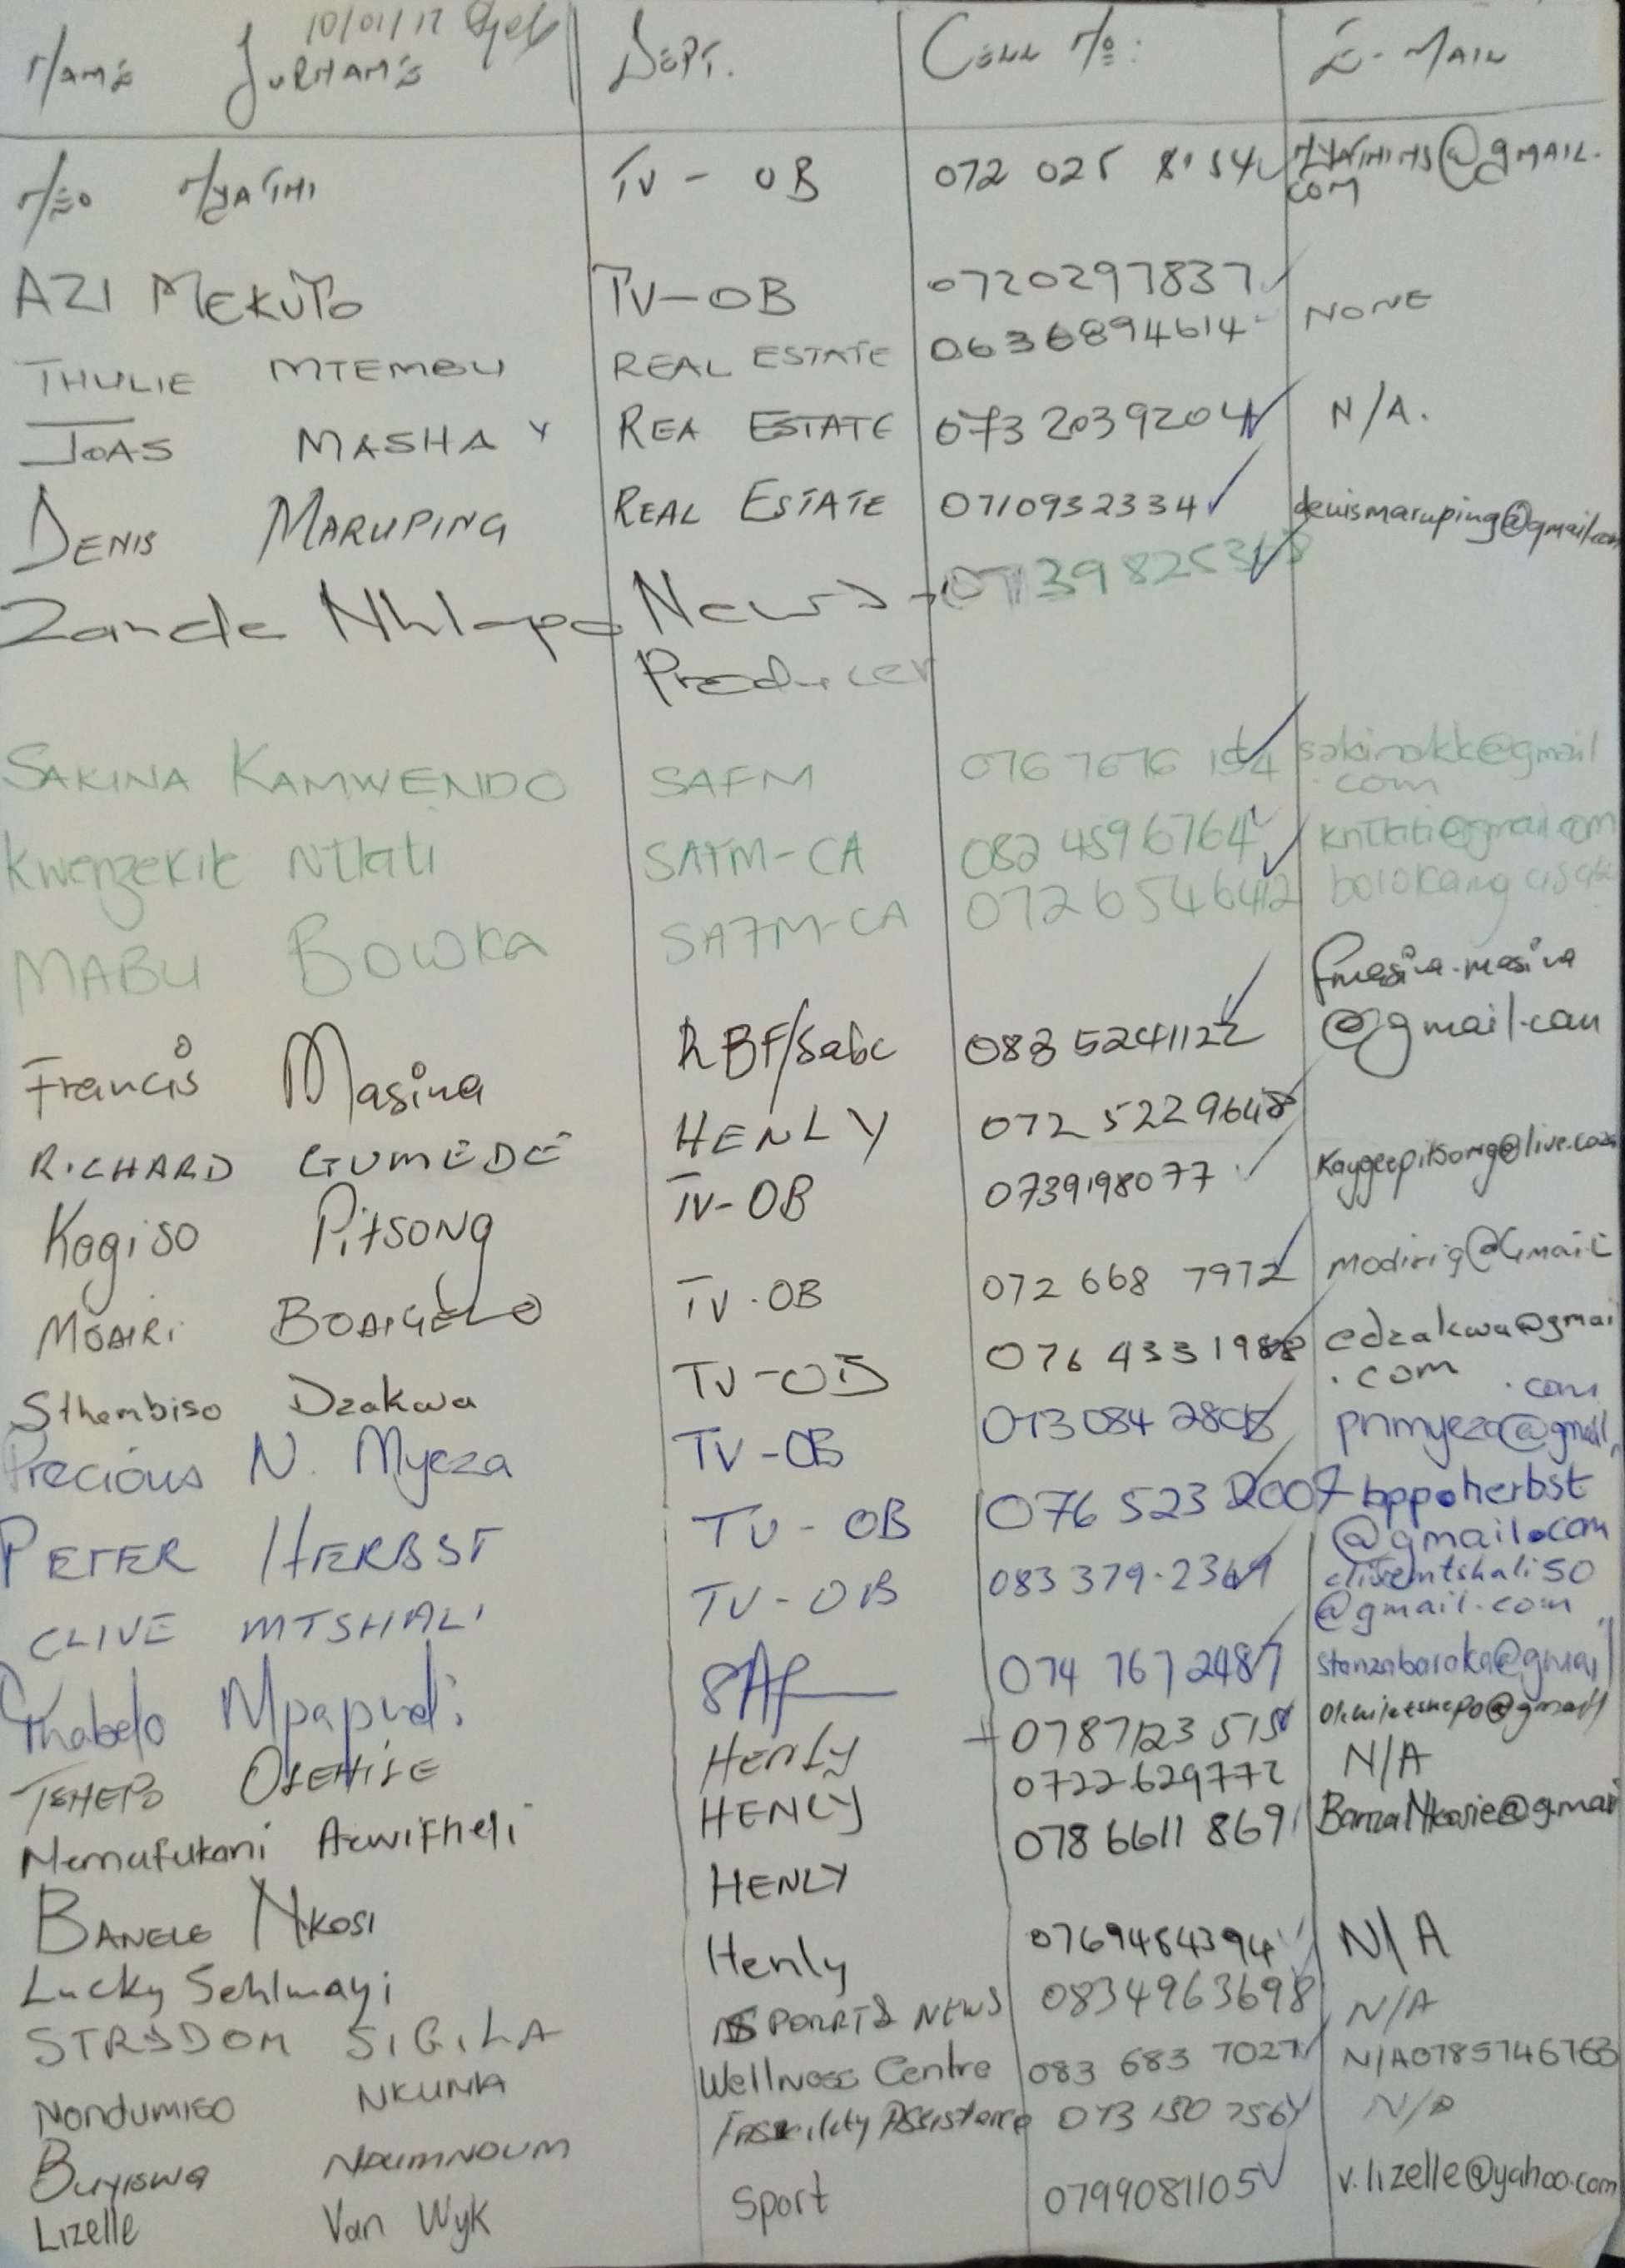 10/01/17
NAME SURNAME DEPT. CELL No: E-MAIL
NEO NYATHI TV - OB 072 025 8154 NYATHINS@GMAIL.
COM
AZI MEKUTO TV-OB 0720297837
THULIE MTEMBU REAL ESTATE 0636894614 NONE
JOAS MASHA REA ESTATE 073 2039204 N/A.
DENIS MARUPING REAL ESTATE 0710932334 denismaruping@gmail.com
Zanele Nhlapo News - 0713982536
Producer
SAKINA KAMWENDO SAFM 076 7676 194 sakinakk@gmail
.com
Kwenzekile Ntlati SAFM-CA 082 4596764 kntlati@gmail.com
MABU BOWKA SAFM-CA 0726546412 bolokang
Francis Masina RBF/Sabc 083 5241122 fmasina.masina
@gmail.com
RICHARD GUMEDE HENLY 072 5229648
Kagiso Pitsong TV-OB 0739198077 Kaygeepitsong@live.com
MODIRI BOAIGELO TV-OB 072 668 7972 modirig@Gmail
Sthembiso Dzakwa TV-OB 076 4331988 edzakwa@gmai
.com
.com
Precious N. Myeza TV-OB 073 084 2808 pnmyeza@gmail
PETER HERBST TV-OB 076 523 2007 bppoherbst
@gmail.com
CLIVE MTSHALI TV-OB 083 379-2369 clivemtshali50
@gmail.com
Thabelo Mpapuli SAf 074 767 2487 stanzabaroka@gmail
TSHEPO OLEHILE Henly 0787123 515 Olehiletshepo@gmail
Nemafukani Azwifheli HENLY 0722629772 N/A
BANELE NKOSI HENLY 078 6611 869 BanzaNkosie@gmai
Lucky Sehlmayi Henly 0769484394 N/A
STRYDOM SIGILA SPORTS NEWS 0834963698 N/A
Nondumiso NKUNA Wellness Centre 083 683 7027 N/A0785746763
BUYISWA Facility Assistance 073 150 7564 N/A
Lizelle Van Wyk Sport 0799081105 v.lizelle@yahoo.com